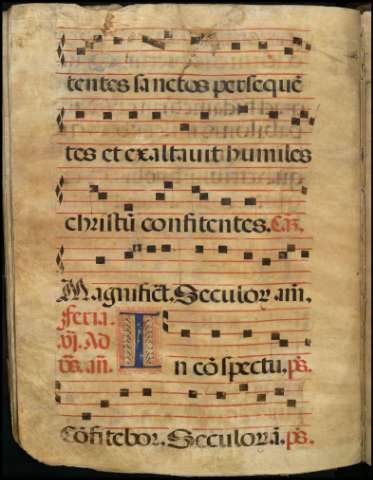 tentes sanctos persequē
tes et exaltauit humiles
christū confitentes. Cā.
Magnificat. Seculor. am̄.
Feria
.vj. Ad
In cōspectu. ps.
Cōfitebor. Seculor. ā. ps.